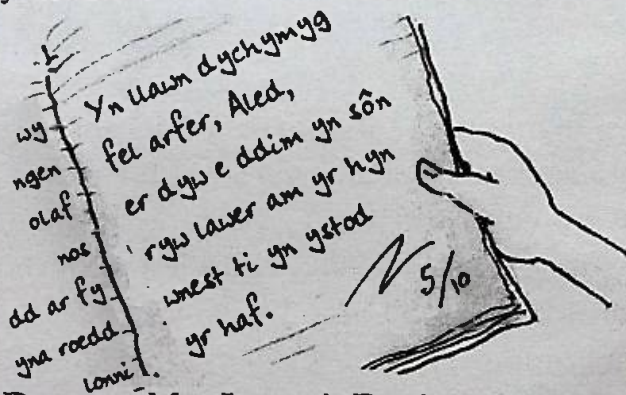 wy
ngen
olaf
nos
dd ar fy
yna roedd
lonni
Yn llawn dychymyg
fel arfer, Aled,
er dyw e ddim yn sôn
ryw lawer am yr hyn
wnest ti yn ystod
yr haf.
5/10